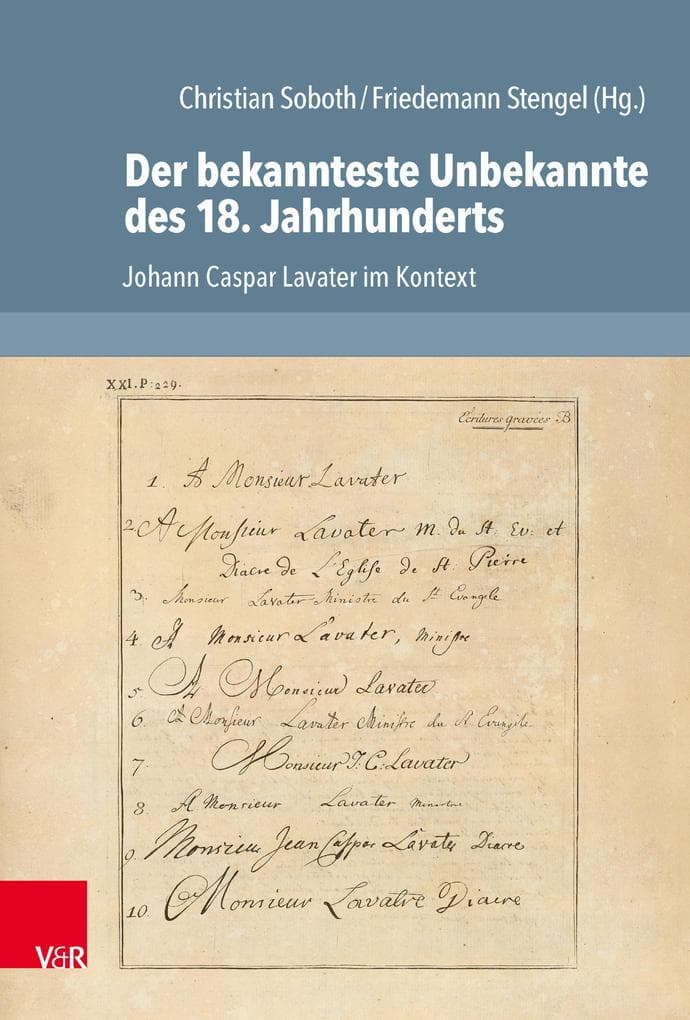 Christian Soboth / Friedemann Stengel (Hg.)
Der bekannteste Unbekannte
des 18. Jahrhunderts
Johann Caspar Lavater im Kontext
XXI. P: 229.
Ecritures gravées B
1. A Monsieur Lavater
2 A Monsieur Lavater m. du St. Ev: et
Diacre de L'Eglise de St. Pierre
3. Monsieur Lavater Ministre du St Evangile
4. A Monsieur Lavater, Ministre
5 A Monsieur Lavater
6. A Monsieur Lavater Ministre du St Evangile
7. Monsieur J: C: Lavater
8 A Monsieur Lavater Ministre
9. Monsieur Jean Caspar Lavater Diacre
10. Monsieur Lavatre Diacre
V&R